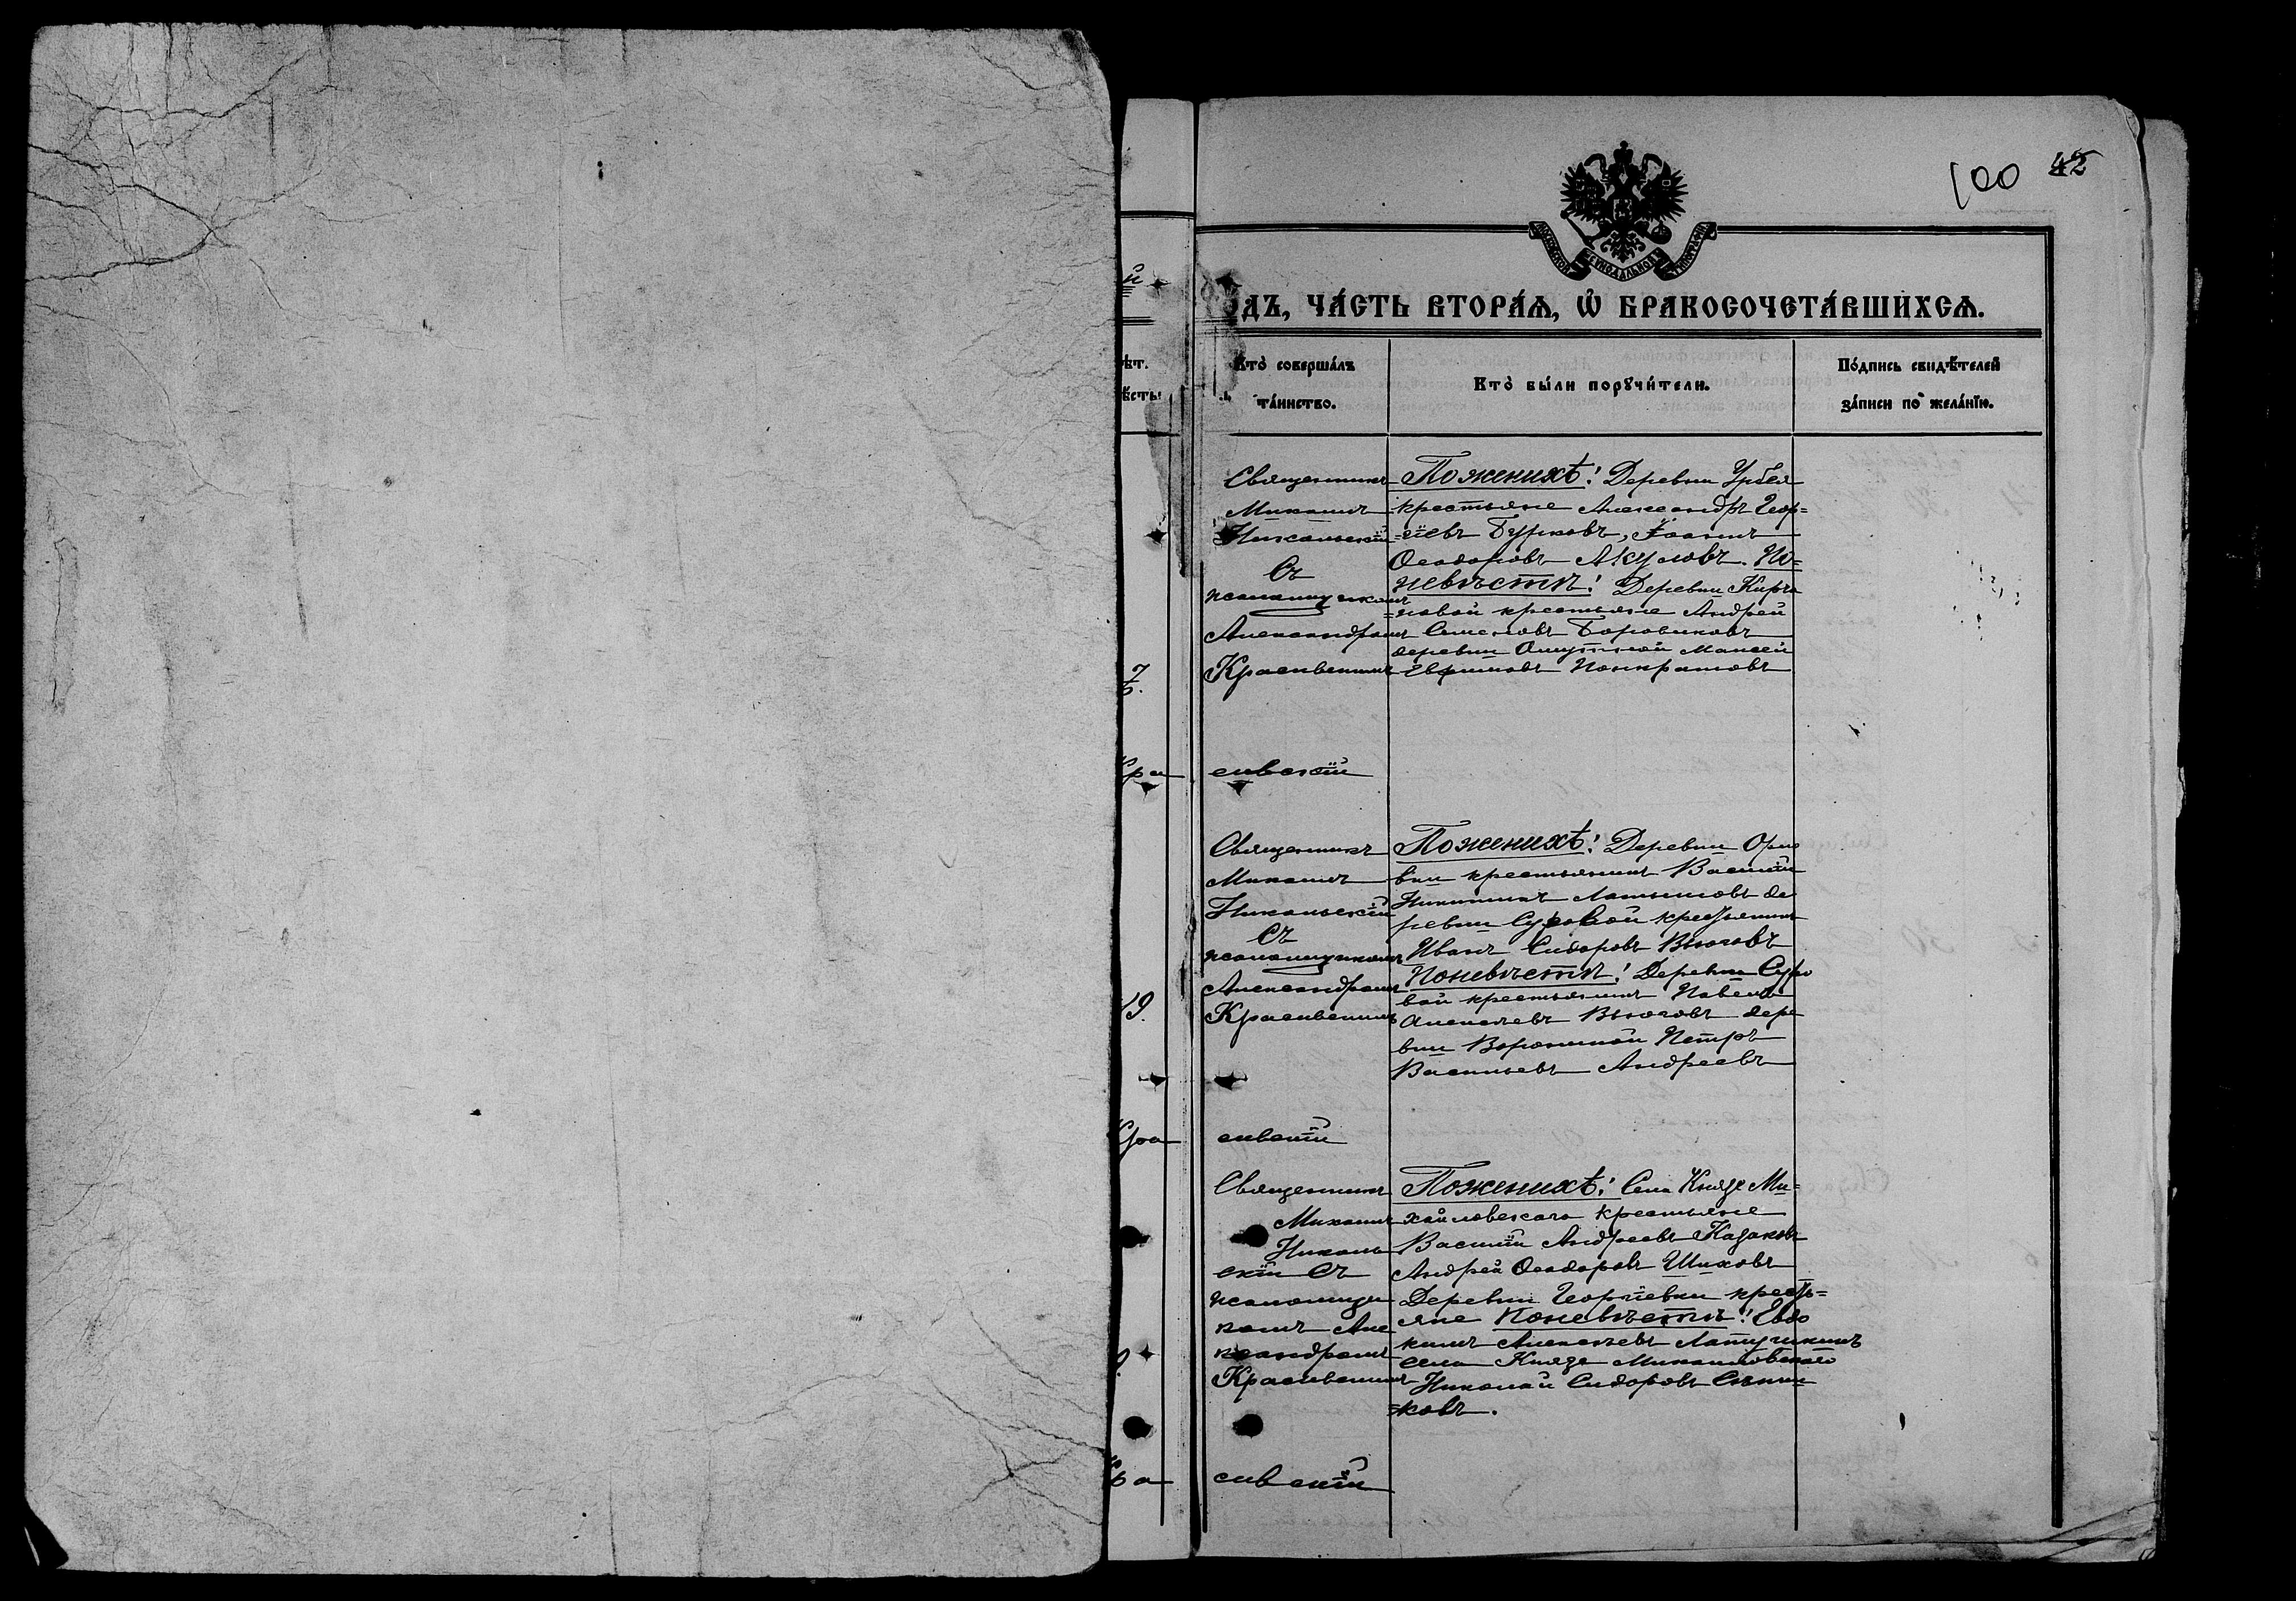 100 42
СѴНОДАЛЬНОЙ
ДЪ, ЧА́СТЬ ВТОРА́Ѧ, Ѡ҆ БРАКОСОЧЕТА́ВШИХСѦ.
Кто̀ соверша́лъ
та́инство.
Кто̀ бы́ли порꙋчи́тели.
По́дпись свидѣ́телей
за́писи по жела́нїю.
ѣт.
ѣсты
Священникъ
Михаилъ
Никольскій
Съ
псаломщикомъ
Александромъ
Красивскимъ
По женихѣ: Деревни Урбея
крестьяне Александръ Геор=
=гіевъ Бурковъ, Іоаннъ
Ѳеодоровъ Акуловъ. По=
невѣстѣ: Деревни
=новой крестьяне Андрей
Семеновъ Боровиковъ
деревни Моисей
Понкратовъ
Кра сивскій
Священникъ
Михаилъ
Никольскій
Съ
псаломщикомъ
Александромъ
Красивскимъ
По женихѣ: Деревни Орло
вки крестьянинъ Василій
Никитинъ Латышовъ де
ревни Суровой крестьянинъ
Иванъ Сидоровъ Вьюговъ
По невѣстѣ: Деревни Суро
вой крестьянинъ Павелъ
Алексѣевъ Вьюговъ дере
вни Ворониной Петръ
Васильевъ Андреевъ
19.
Кра сивскій
Священникъ
Михаилъ
Николь
скій Съ
псаломщи
комъ Але
ксандромъ
Красивскимъ
По женихѣ: Села Князе Ми=
хайловскаго крестьяне
Василій Андреевъ Казаковъ
Андрей Ѳеодоровъ Шиховъ
Деревни Георгіевки кресть=
яне По невѣстѣ: Евдо
кимъ Алексѣевъ Латушкинъ
села Князе Михайловскаго
Николай Сидоровъ
=ковъ.
Кра сивскій